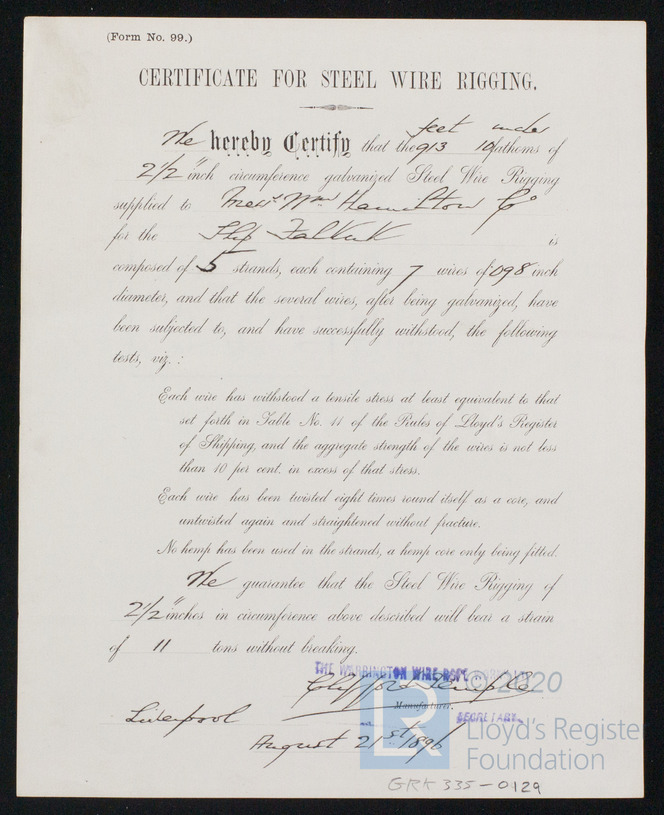 (Form No. 99.)
CERTIFICATE FOR STEEL WIRE RIGGING.
feet under
We hereby Certify that the 913 10 fathoms of
2 1/2" inch circumference galvanized Steel Wire Rigging
supplied to Messrs Wm Hamilton & Co
for the Ship Falkirk is
composed of 5 strands, each containing 7 wires of .098 inch
diameter, and that the several wires, after being galvanized, have
been subjected to, and have successfully withstood, the following
tests, viz. :
Each wire has withstood a tensile stress at least equivalent to that
set forth in Table No. 11 of the Rules of Lloyd's Register
of Shipping, and the aggregate strength of the wires is not less
than 10 per cent. in excess of that stress.
Each wire has been twisted eight times round itself as a core, and
untwisted again and straightened without fracture.
No hemp has been used in the strands, a hemp core only being fitted.
We guarantee that the Steel Wire Rigging of
2 1/2" inches in circumference above described will bear a strain
of 11 tons without breaking.
THE WARRINGTON WIRE ROPE
© 2020
Manufacturer.
Liverpool
SECRETARY.
August 21st 1896
LR
Lloyd's Registe
Foundation
GRK 335-0129